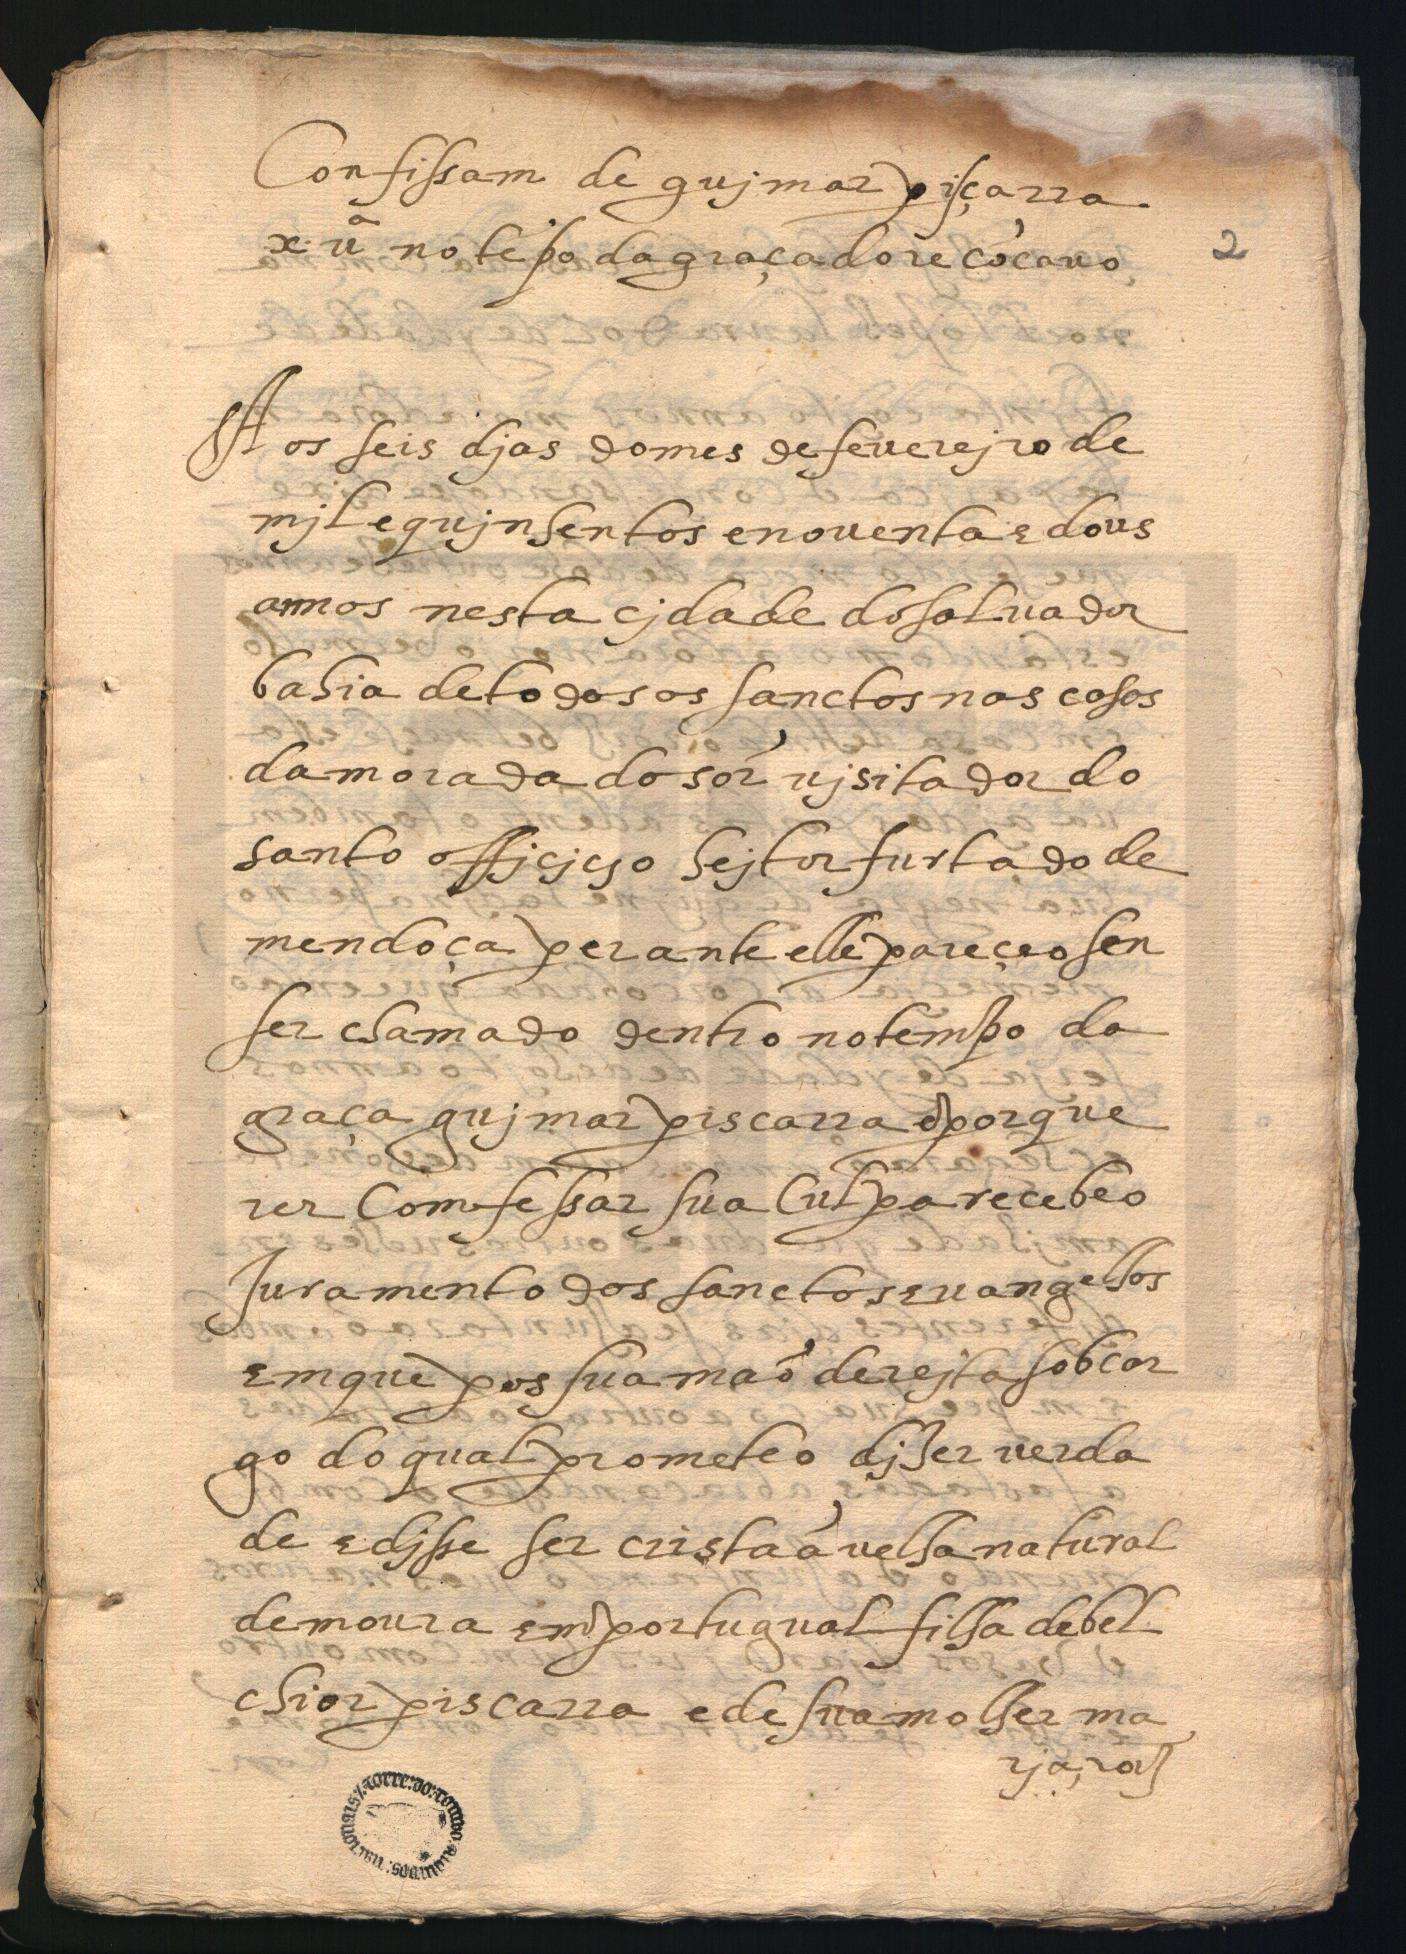 Confissam de gujmar pisçarra
x. vª no tẽpo da graça do recõcauo
2
Aos seis djas do mes de feuerejro de
mjl e qujnhentos e nouenta e dous
annos nesta cjdade do saluador
bahia de todos os sanctos nas casas
da morada do sõr ujsitador do
santo officjo hejtor furtado de
mendoça perante elle pareçeo sen
ser chamado dentro no tempo da
graça gujmar piscarra & por que
rer Comfessar sua Culpa recebeo
Juramento dos sanctos euangelhos
em que pos sua mão derejta sob car
go do qual prometeo djzer uerda
de e disse ser cristaã uelha natural
de moura em portugual filha de bel
chior piscarra e de sua molher ma
rja, roiz